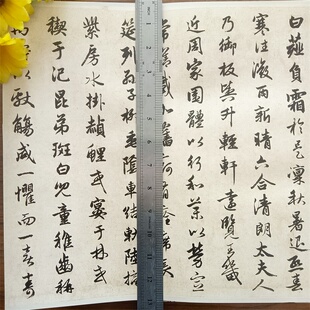 白薤負霜於是凜秋暑退熙春
寒往微雨新晴六合清朗太夫人
乃御板輿升輕軒遠覽王畿
近周家園體以行和藥以勞宣
常膳載加舊痾有痊席長
筵列孫子柳垂陰車結軌陸摘
紫房水掛赬鯉或宴于林或
禊于汜昆弟斑白兒童稚齒稱
萬壽以獻觴咸一懼而一喜壽